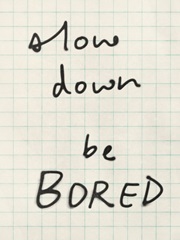 slow
down
be
BORED